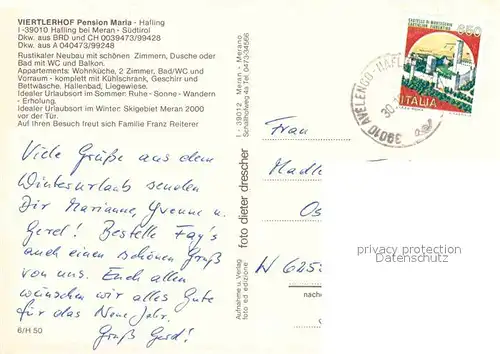 VIERTLERHOF Pension Maria - Hafling
I-39010 Hafling bei Meran - Südtirol
Dkw. aus BRD und CH 0039473/99428
Dkw. aus A 040473/99248
Rustikaler Neubau mit schönen Zimmern, Dusche oder
Bad mit WC und Balkon.
Appartements: Wohnküche, 2 Zimmer, Bad/WC und
Vorraum - komplett mit Kühlschrank, Geschirr und
Bettwäsche. Hallenbad, Liegewiese.
Idealer Urlaubsort im Sommer: Ruhe - Sonne - Wandern
- Erholung.
Idealer Urlaubsort im Winter: Skigebiet Meran 2000
vor der Tür.
Auf Ihren Besuch freut sich Familie Franz Reiterer
Viele Grüße aus dem
Winterurlaub senden
Dir Marianne, Yvonne u.
Gerd! Bestelle Fay's
auch einen schönen Gruß
von uns. Euch allen
wünschen wir alles Gute
für das Neue Jahr.
Gruß Gerd!
6/H 50
I - 39012 Meran - Merano
Schallhofweg 4a Tel. 0473/34566
foto dieter drescher
Aufnahme u. Verlag
foto ed edizione
CASTELLO DI MONTECCHIO
CASTIGLION FIORENTINO
650
ITALIA
39010 AVELENGO-HAFL
30
Frau
Madl
Os
W 625
nache
privacy protection
Datenschutz